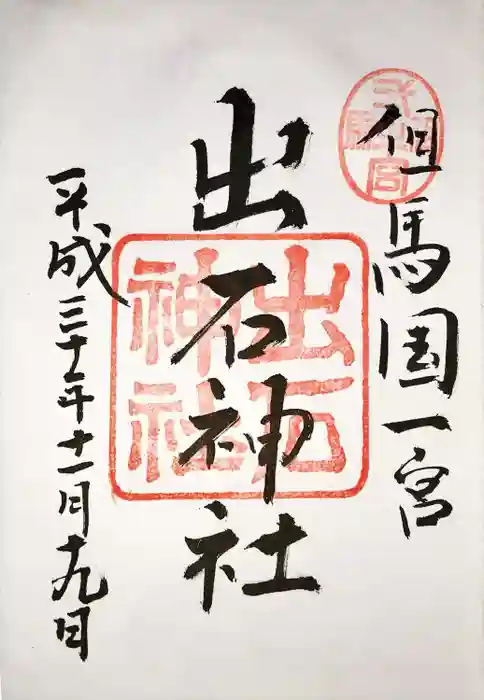 但馬国一宮
出石神社
平成三十年十一月十九日
出石
神社